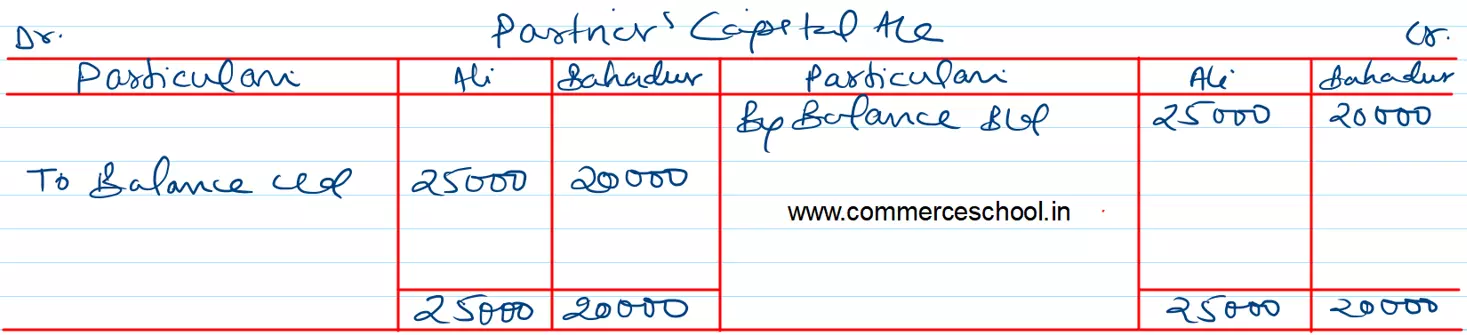 Dr. Partner's Capital A/c Cr.
Particulars Ali Bahadur Particulars Ali Bahadur
By Balance B/d 25000 20000
To Balance c/d 25000 20000
www.commerceschool.in
25000 20000 25000 20000